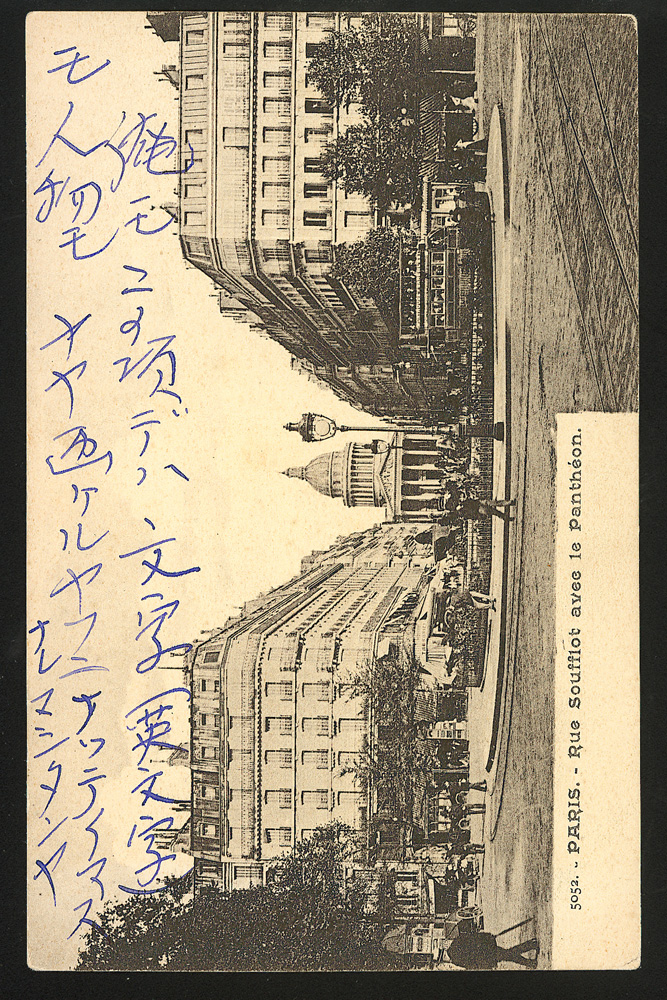 俺モコノ頃デハ文字(英文字)
モ人物モ画ケルヤフニナッテイマス
ナレマシタンヤ
5052. - PARIS. - Rue Soufflot avec le Panthéon.